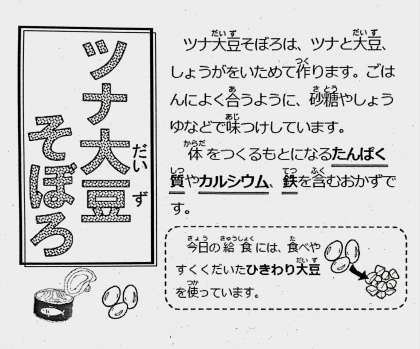 ツナ大豆そぼろ
ツナ大豆そぼろは、ツナと大豆、
しょうがをいためて作ります。ごは
んによく合うように、砂糖やしょう
ゆなどで味つけしています。
体をつくるもとになるたんぱく
質やカルシウム、鉄を含むおかずで
す。
今日の給食には、食べや
すくくだいたひきわり大豆
を使っています。